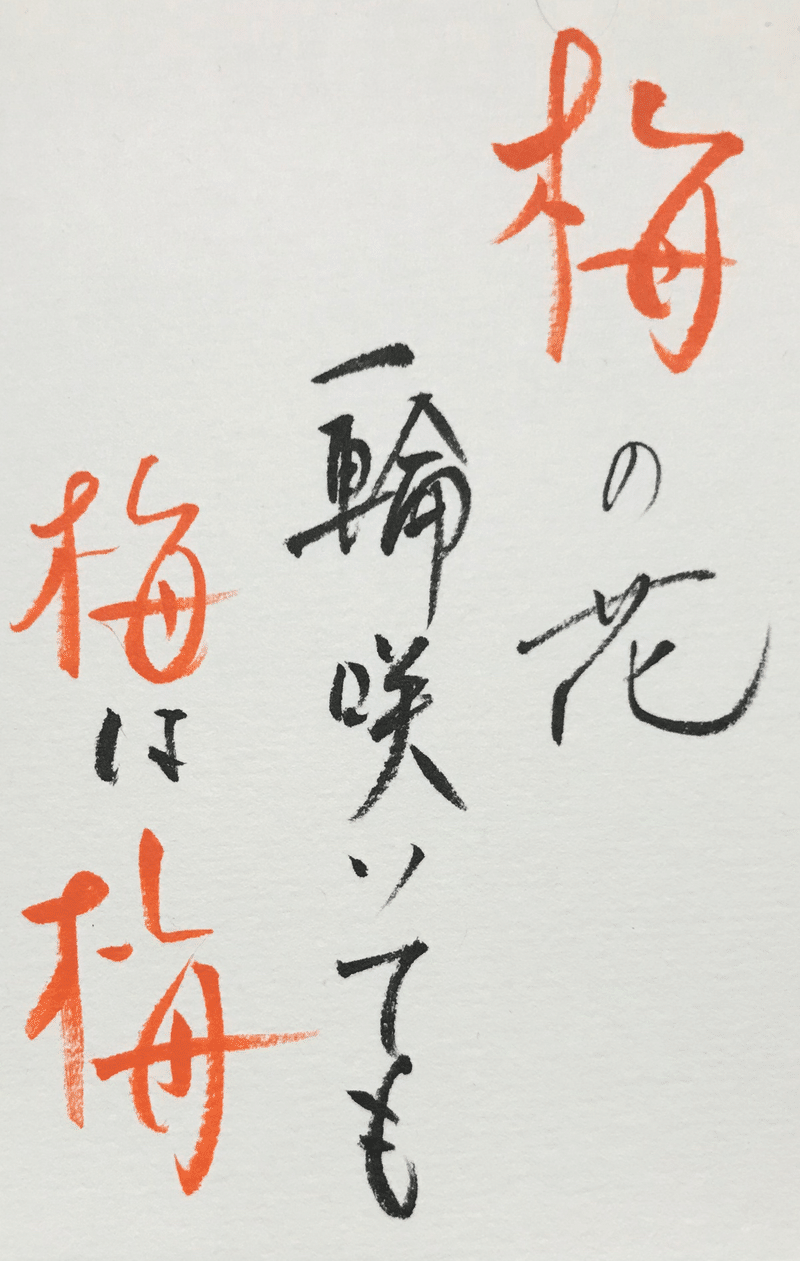 梅の花
一輪咲いても
梅は梅